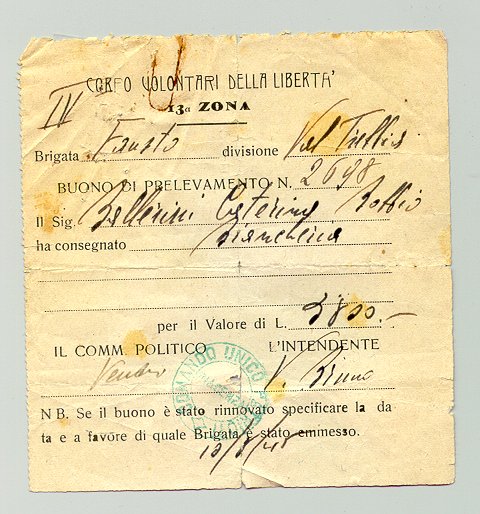 CORPO VOLONTARI DELLA LIBERTA'
13a ZONA
IV
Brigata Fausto divisione Val Trebbia
BUONO DI PRELEVAMENTO N. 2698
Il Sig. Ballerini Caterina Bobbio
ha consegnato biancheria
per il Valore di L. 3800.—
IL COMM. POLITICO L'INTENDENTE
V. Bruno
COMANDO UNICO
N B. Se il buono è stato rinnovato specificare la da
ta e a favore di quale Brigata è stato eminesso.